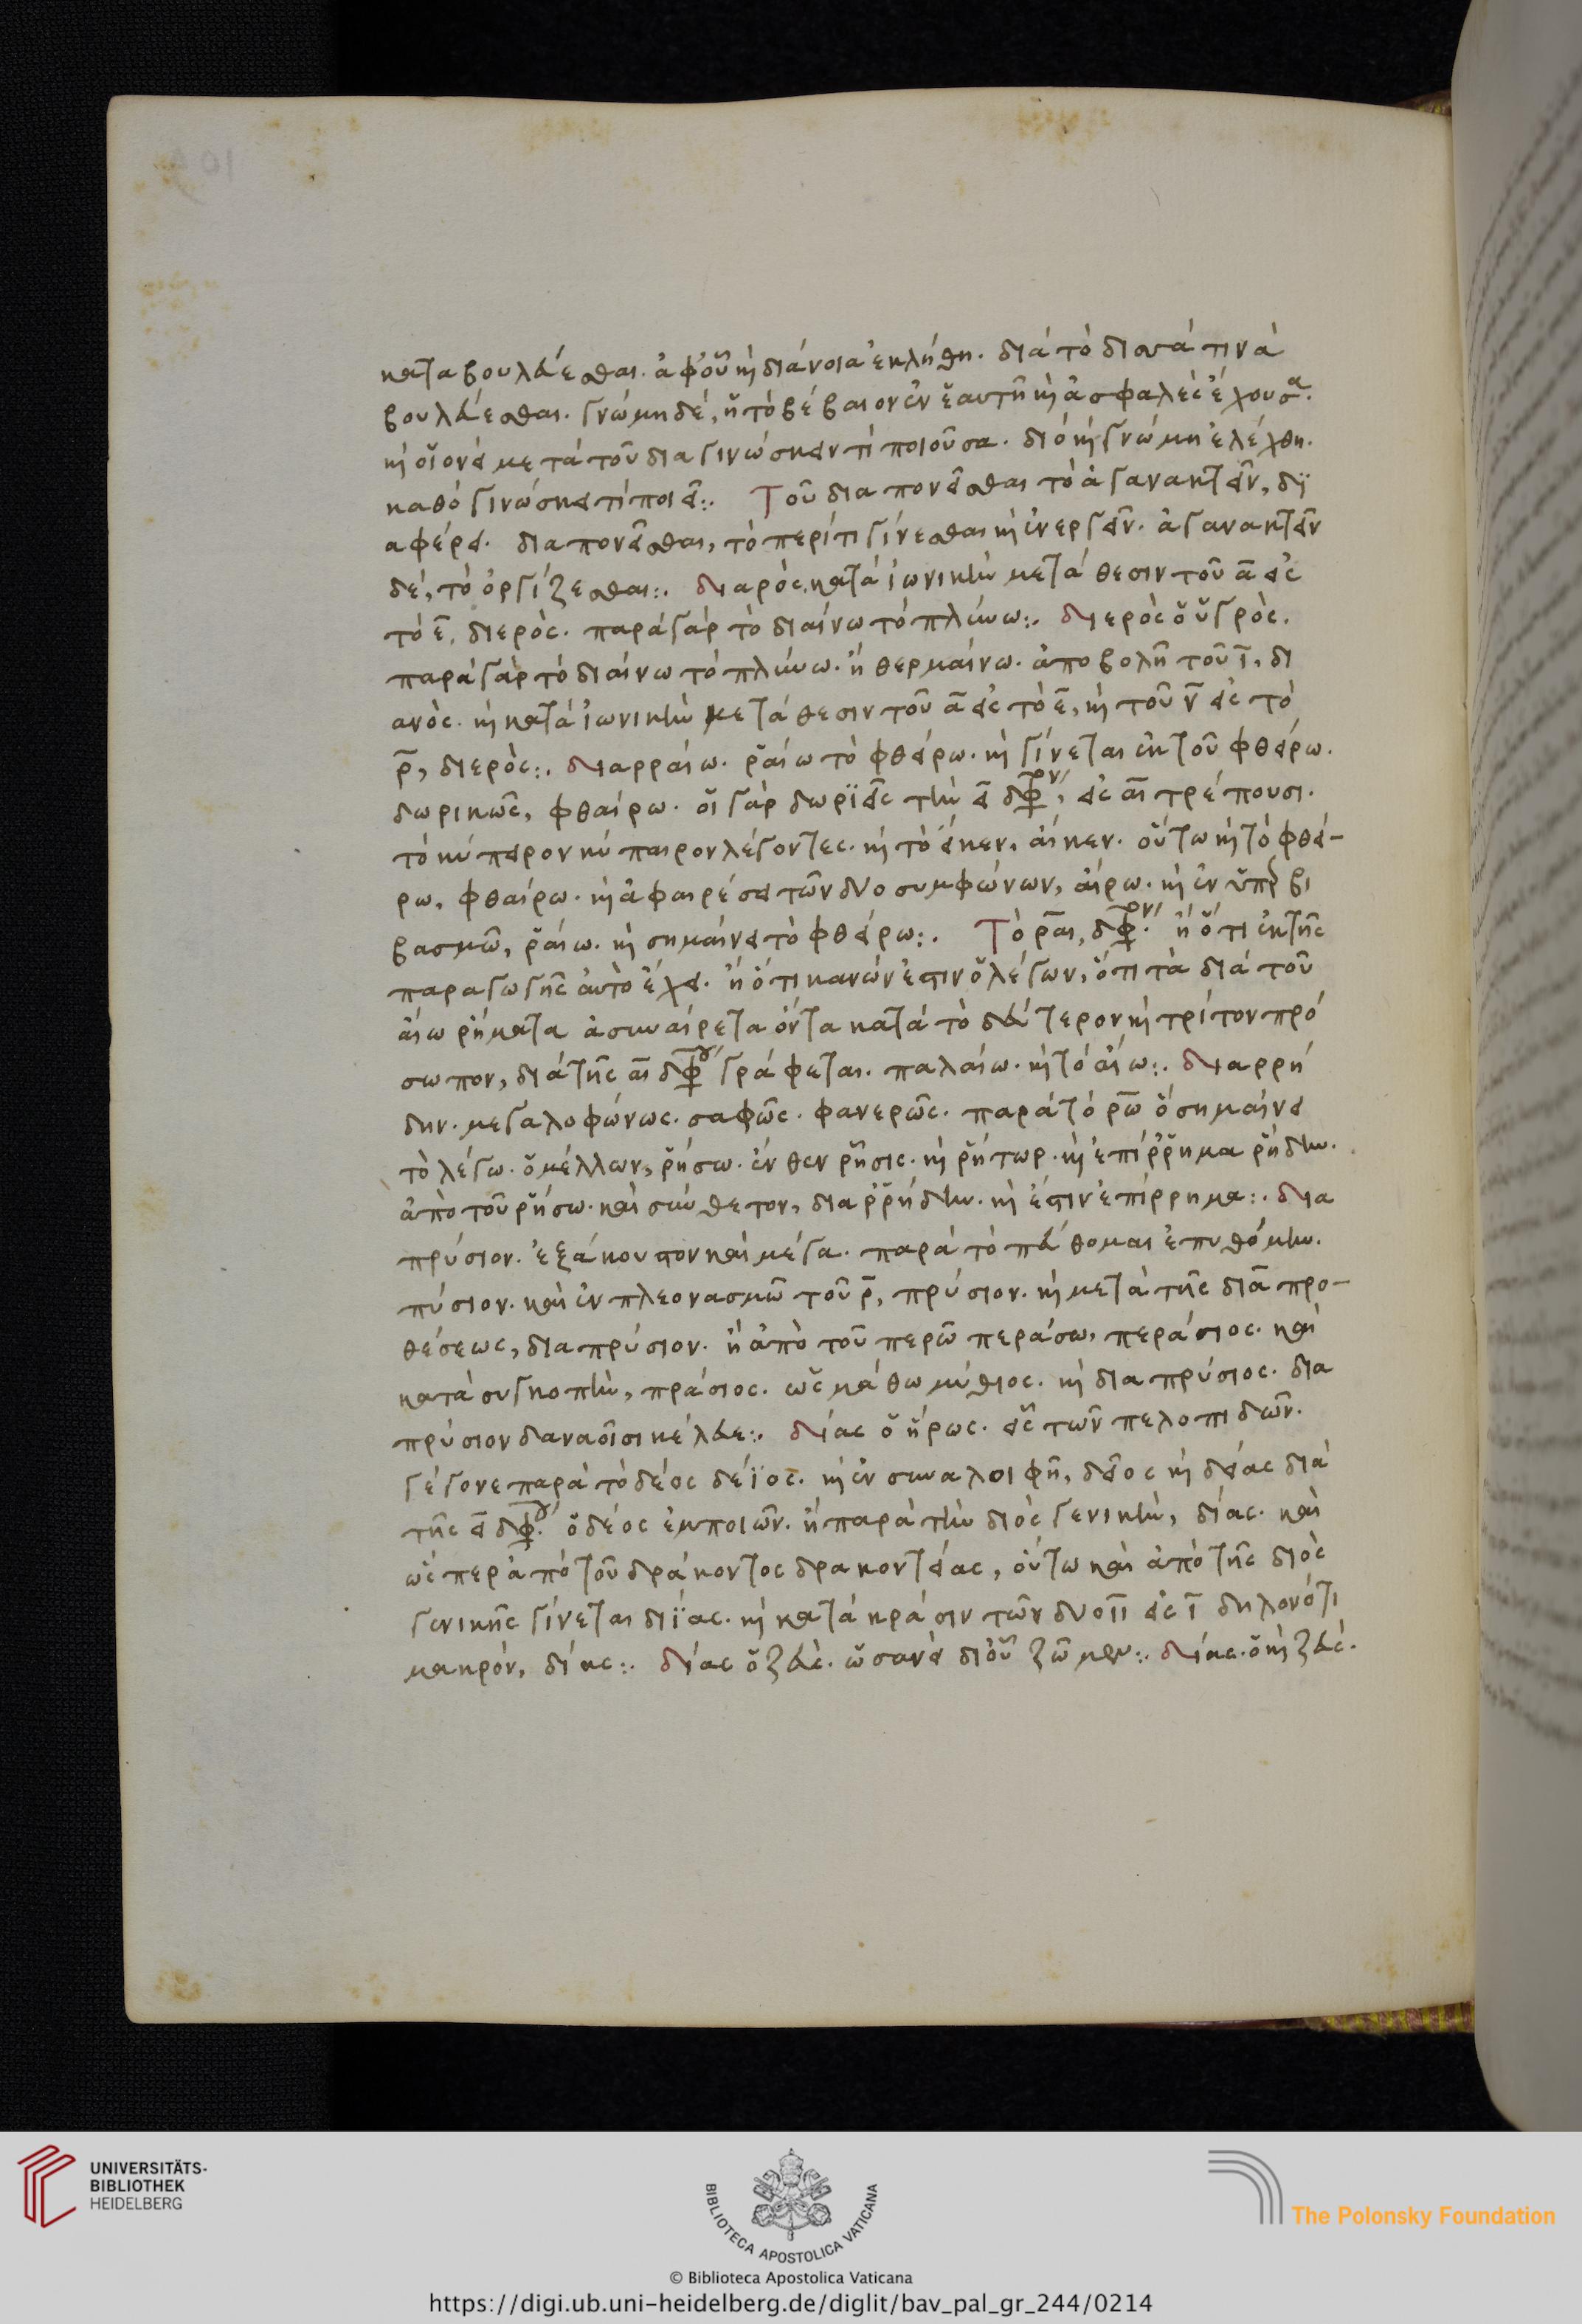 καταβουλεύεσθαι. ἀφ' οὗ καὶ διάνοια ἐκλήθη. διὰ τὸ διανά τινα
βουλεύεσθαι. γνώμη δέ, ἡ τὸ βέβαιον ἐν ἑαυτῇ καὶ ἀσφαλὲς ἔχουσα.
καὶ οἱονεὶ μετὰ τοῦ διαγινώσκειν τί ποιοῦσα. διὸ καὶ γνώμη ἐλέχθη.
καθὸ γινώσκει τί ποιεῖ:. Τοῦ διαπονεῖσθαι τὸ ἀγανακτεῖν, δι
αφέρει. διαπονεῖσθαι, τὸ περί τι γίνεσθαι καὶ ἐνεργεῖν. ἀγανακτεῖν
δέ, τὸ ὀργίζεσθαι:. διαρὸς, κατὰ ἰωνικὴν μετάθεσιν τοῦ α εἰς
τὸ ε, διερὸς. παρὰ γὰρ τὸ διαίνω τὸ πλύνω:. διερὸς ὁ ὑγρὸς.
παρὰ γὰρ τὸ διαίνω τὸ πλύνω. ἢ θερμαίνω. ἀποβολῇ τοῦ ι, δι
ανὸς. καὶ κατὰ ἰωνικὴν μετάθεσιν τοῦ α εἰς τὸ ε, καὶ τοῦ ν εἰς τὸ
ρ, διερὸς:. διαρραίω. ῥαίω τὸ φθείρω. καὶ γίνεται ἐκ τοῦ φθείρω.
δωρικῶς, φθαίρω. οἱ γὰρ δωριεῖς τὴν ει δφρν, εἰς αι τρέπουσι.
τὸ κύπειρον κύπαιρον λέγοντες. καὶ τὸ εἴκεν, αἴκεν. οὕτω καὶ τὸ φθεί-
ρω, φθαίρω. καὶ ἀφαιρέσει τῶν δύο συμφώνων, αἴρω. καὶ ἐν ὑπερβι
βασμῶ, ῥαίω. καὶ σημαίνει τὸ φθείρω:. Τὸ ραι, δφρν. ἢ ὅτι ἐκ τῆς
παραγωγῆς αὐτὸ ἔχει. ἢ ὅτι κανών ἐστιν ὁ λέγων, ὅτι τὰ διὰ τοῦ
αίω ῥήματα ἀσυναίρετα ὄντα κατὰ τὸ δεύτερον καὶ τρίτον πρό
σωπον, διὰ τῆς αι δφρου γράφεται. παλαίω. καὶ τὸ αἴω:. διαρρή
δην. μεγαλοφώνως. σαφῶς. φανερῶς. παρὰ τὸ ρῶ ὃ σημαίνει
τὸ λέγω. ὁ μέλλων, ῥήσω. ἔνθεν ῥῆσις. καὶ ῥήτωρ. καὶ ἐπίρρημα ῥήδην.
ἀπὸ τοῦ ῥήσω. καὶ σύνθετον, διαρρήδην. καὶ ἔστιν ἐπίρρημα:. δια
πρύσιον. ἐξάκουστον καὶ μέγα. παρὰ τὸ πεύθομαι ἐπυθόμην.
πύσιον. καὶ ἐν πλεονασμῶ τοῦ ρ, πρύσιον. καὶ μετὰ τῆς δια προ-
θέσεως, διαπρύσιον. ἢ ἀπὸ τοῦ περῶ περάσω, περάσιος. καὶ
κατὰ συγκοπὴν, πράσιος. ὡς μάθω μύθιος. καὶ διαπρύσιος. δια
πρύσιον δαναοῖσι κέλευε:. δίας ὁ ἥρως. εἷς τῶν πελοπιδῶν.
γέγονε παρὰ τὸ δέος δέϊος. καὶ ἐν συναλοιφῇ, δεῖος καὶ δείας διὰ
τῆς ει δφρου. ὁ δέος ἐμποιῶν. ἢ παρὰ τὴν διὸς γενικὴν, δίας. καὶ
ὥσπερ ἀπὸ τοῦ δράκοντος δρακοντείας, οὕτω καὶ ἀπὸ τῆς διὸς
γενικῆς γίνεται διΐας. καὶ κατὰ κράσιν τῶν δύο ιι εἰς ι δηλονότι
μακρόν, δίας:. δίας ὁ ζεύς. ὡσανεὶ δι' οὗ ζῶμεν:. δίας. ὁ καὶ ζεύς.
UNIVERSITÄTS-
BIBLIOTHEK
HEIDELBERG
BIBLIOTECA APOSTOLICA VATICANA
The Polonsky Foundation
© Biblioteca Apostolica Vaticana
https://digi.ub.uni-heidelberg.de/diglit/bav_pal_gr_244/0214